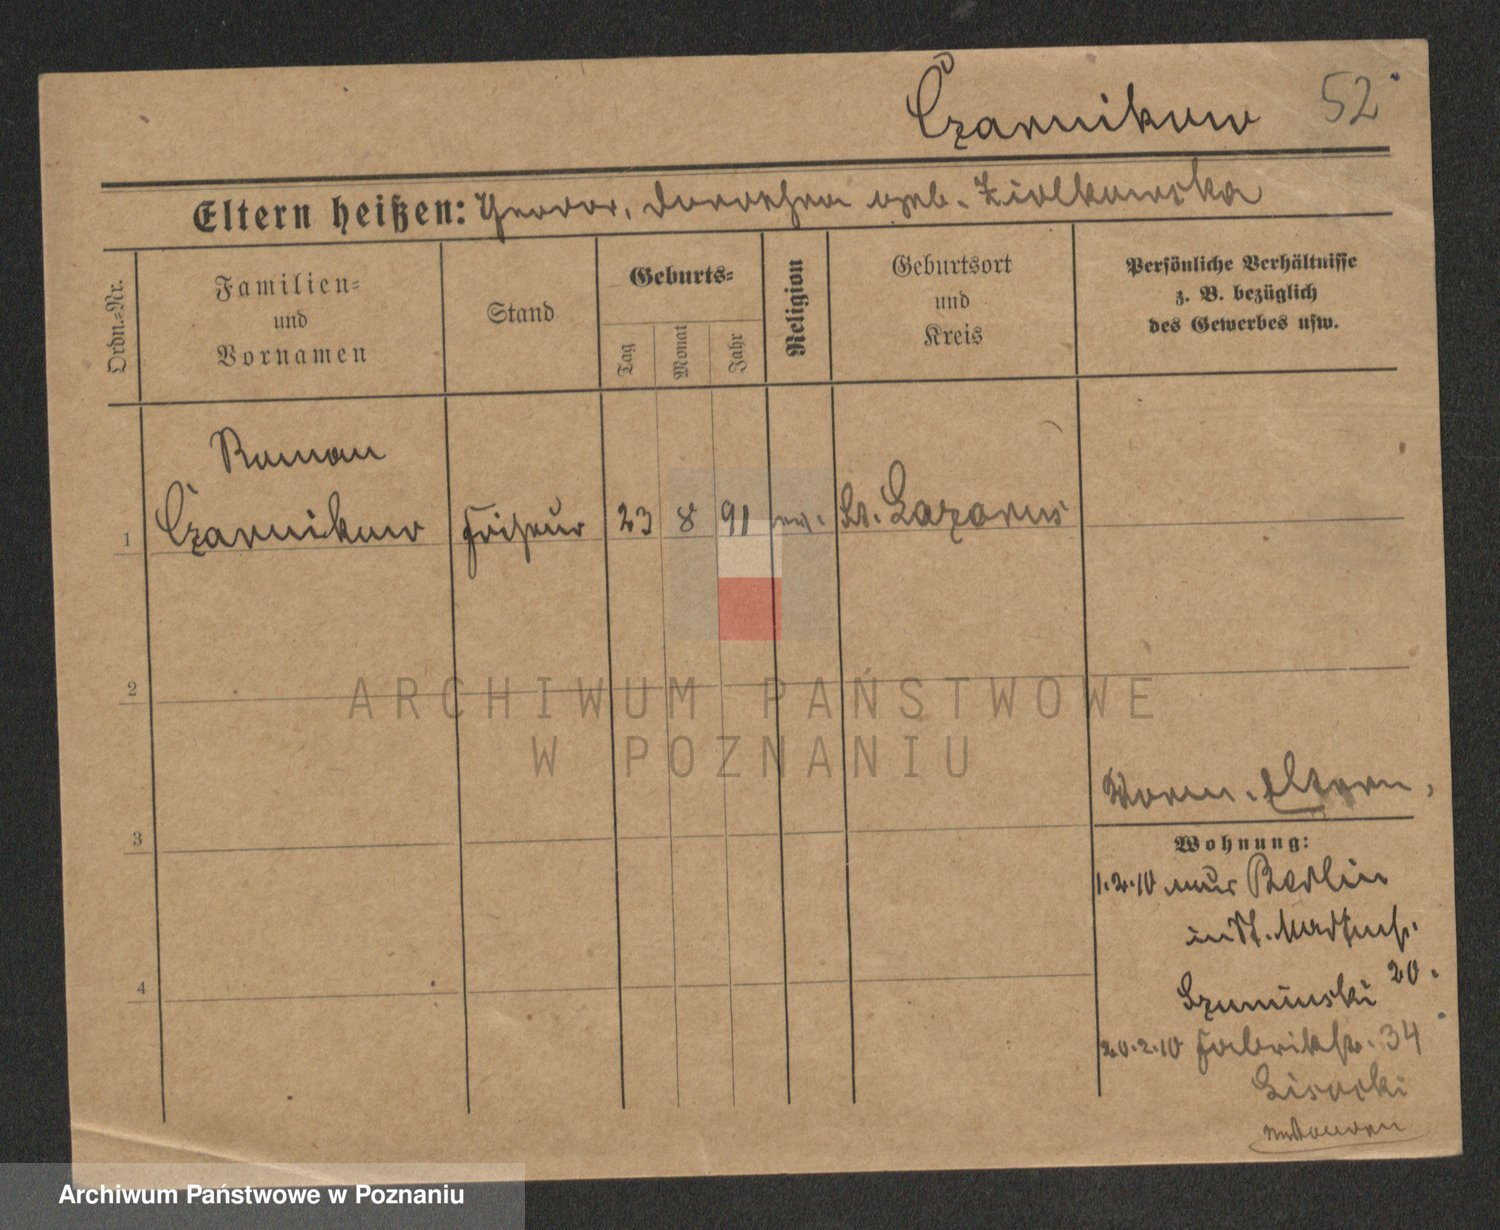 Czarnikow 52
Eltern heißen: Theodor, Dorothea geb. Ziolkowska
Ordn.=Nr.
Familien=
und
Vornamen
Stand
Geburts=
Tag
Monat
Jahr
Religion
Geburtsort
und
Kreis
Persönliche Verhältnisse
z. B. bezüglich
des Gewerbes usw.
Roman
1 Czarnikow Friseur 23 8 91 St. Lazarus
2
3
4
ARCHIWUM PAŃSTWOWE
W POZNANIU
Eltern.
Wohnung:
1.2.10 aus Berlin
in St. Martinstr.
20.
Szuminski
20.2.10 Fabrikstr. 34
Lisecki
Archiwum Państwowe w Poznaniu